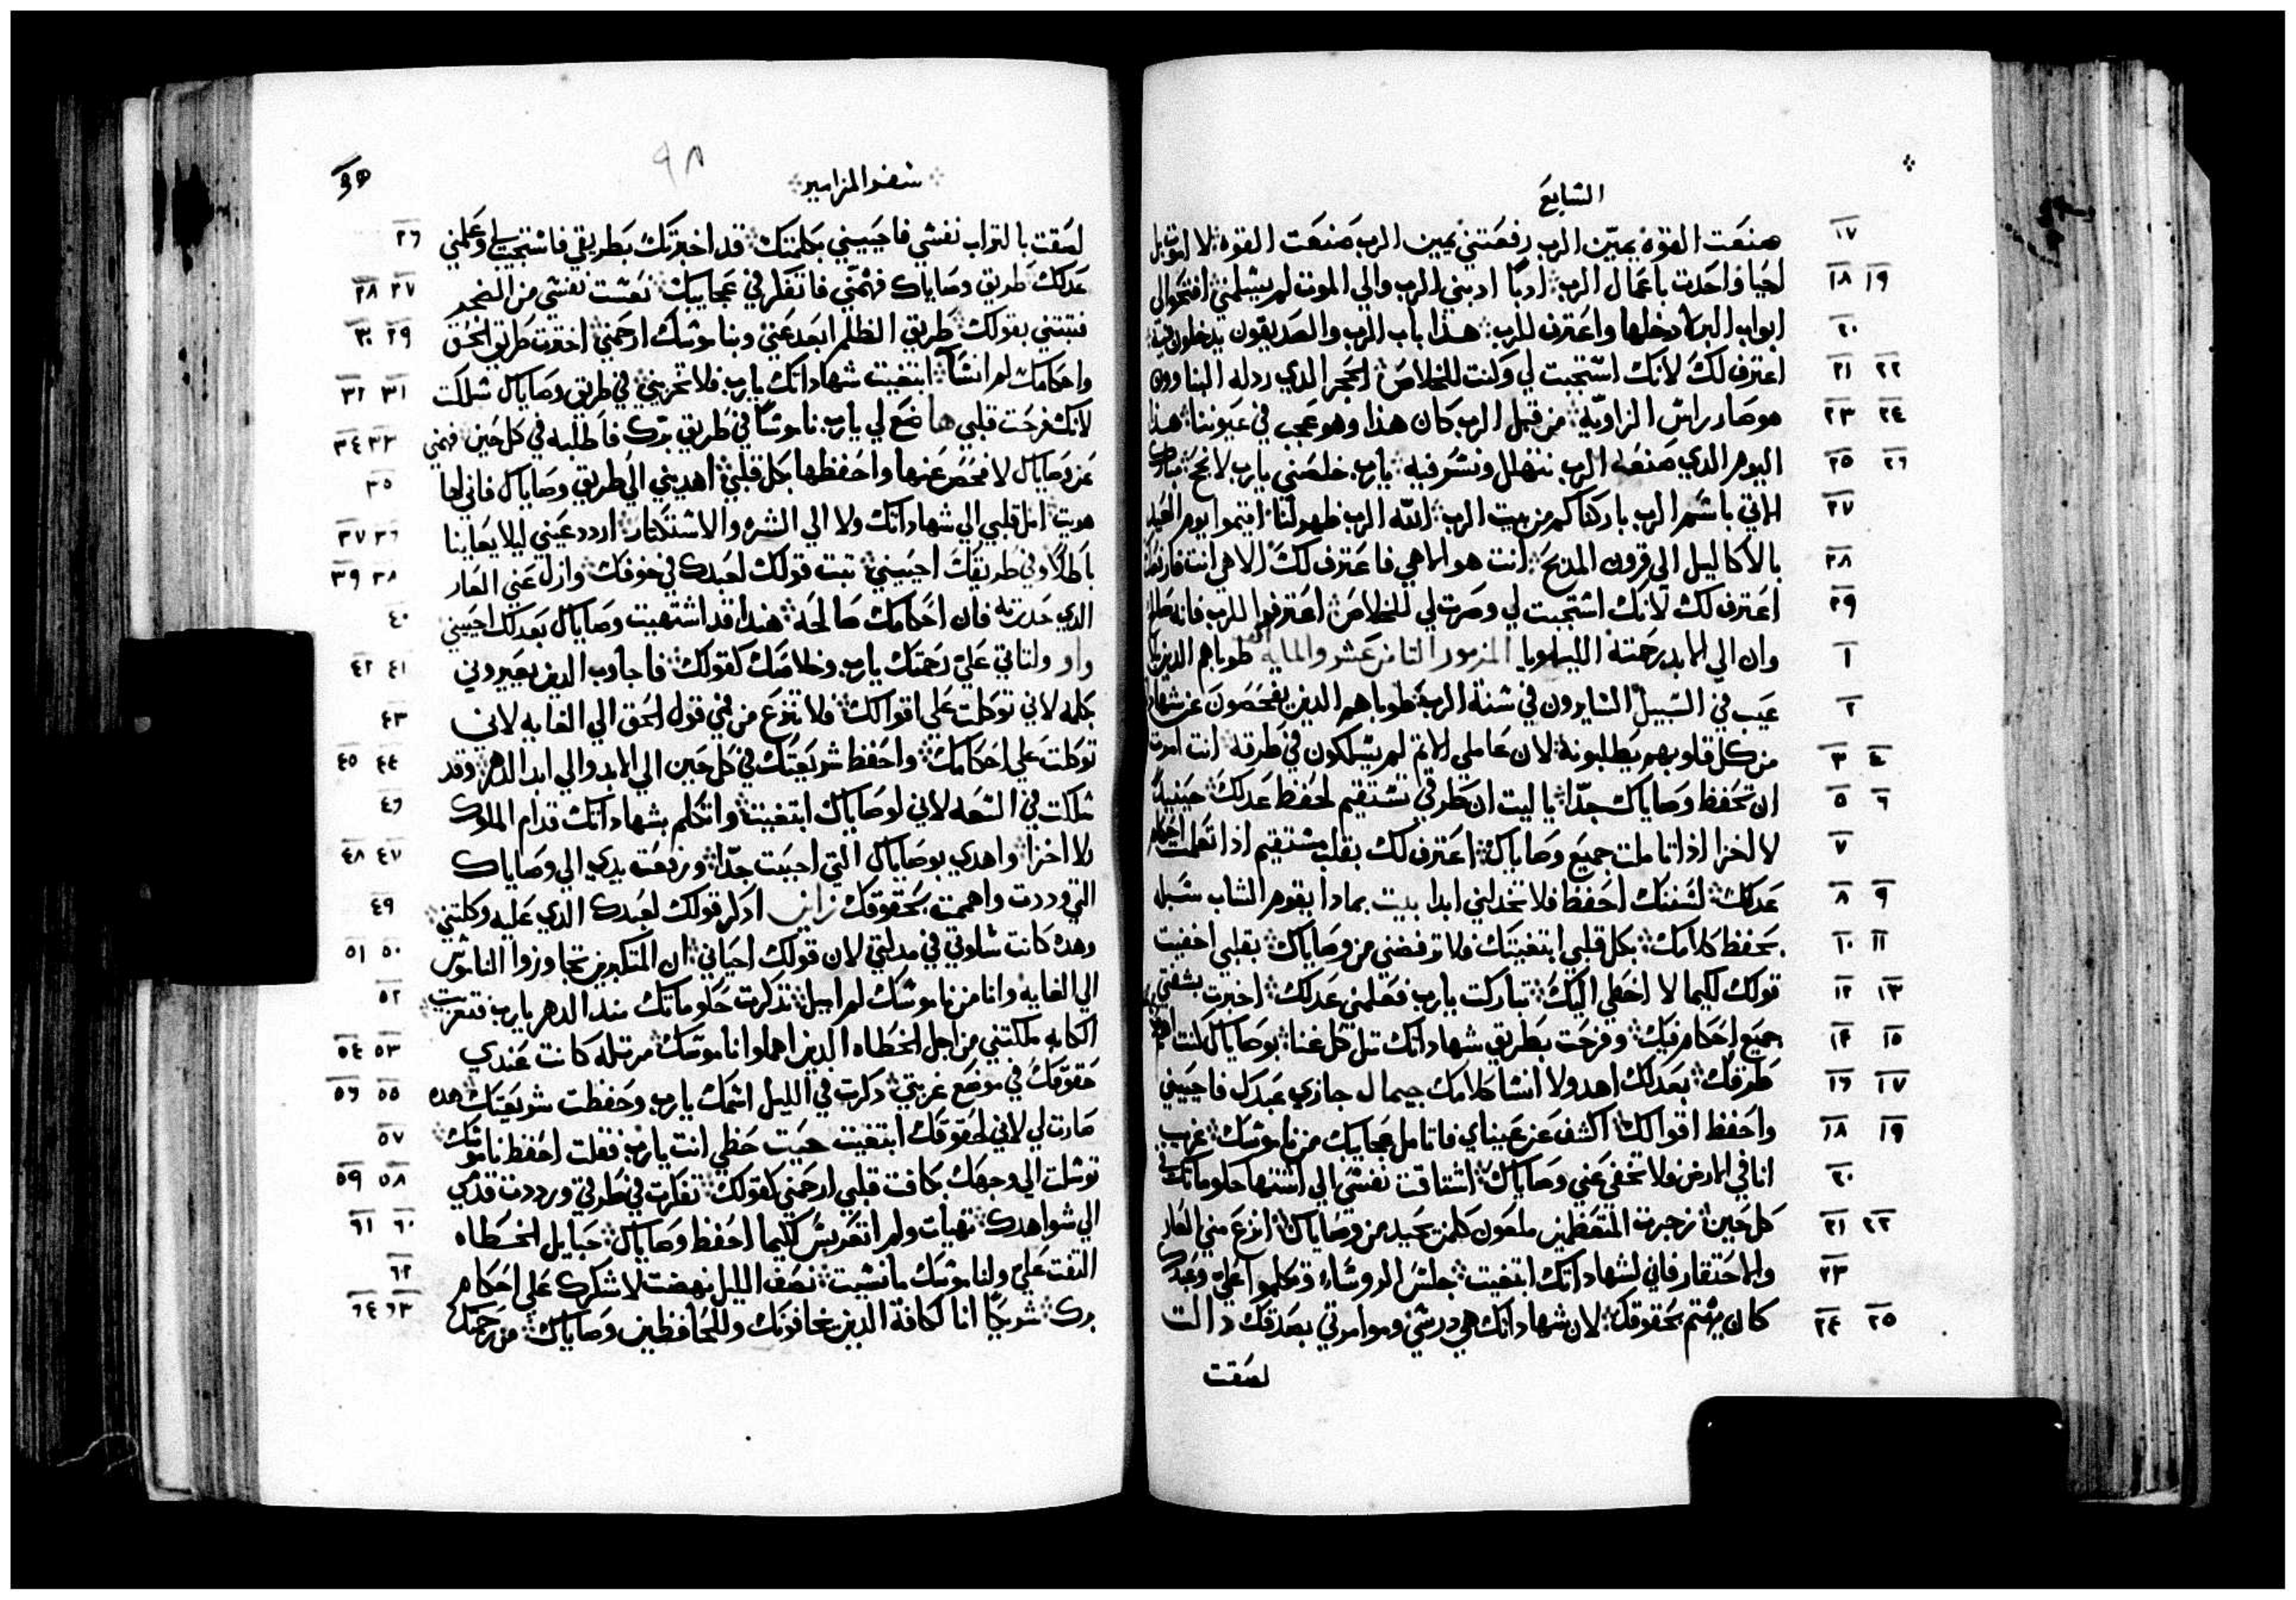 السابع
صنعت القوة يمين الرب رفعتني يمين الرب صنعت القوة لا اموت بل
١٧
احيا واحدت باعمال الرب ادبًا ادبني الرب والي الموت لم يسلمني افتحوا لي
١٨ ١٩
ابواب البر ادخلها واعترف للرب هذا باب الرب والصديقون يدخلون فيه
٢٠
اعترف لك لانك استجبت لي وكنت للخلاص الحجر الدي ردله البناوون
٢١ ٢٢
هو صار راس الزاوية من قبل الرب كان هذا وهو عجب في عيوننا هذا
٢٣ ٢٤
اليوم الدي صنعه الرب نتهلل ونسر فيه يارب خلصني يارب لانجح مبارك
٢٥ ٢٦
الاتي باسم الرب باركناكم من بيت الرب الله الرب ظهر لنا اقيموا يوم العيد
٢٧
بالاكاليل الي قرون المدبح انت هو الاهي فاعترف لك الاهي انت فارفعك
٢٨
اعترف لك لانك استجبت لي وصرت لي للخلاص اعترفوا للرب فانه صالح
٢٩
وان الي الابد رحمته الليلويا المزمور التامن عشر والمايه طوباهم الدين بلا
١
عيب في السبيل السايرون في سنة الرب طوباهم الدين يفحصون عن شهاداته
٢
من كل قلوبهم يطلبونه لان عاملي الاتم لم يسلكون في طرقه انت امرت
٣ ٤
ان تحفظ وصاياك جدًا يا ليت ان طرقي تستقيم لحفظ عدلك حينيدً
٥ ٦
لا اخزا اذا تاملت جميع وصاياك اعترف لك بقلب مستقيم اذا تعلمت احكام
٧
عدلك لسننك احفظ فلا تخدلني ابدا بيت بمادا يقوم الشاب سبل
٨ ٩
بحفظ كلامك بكل قلبي ابتغيتك فلا ترفضني من وصاياك بقلبي اخفيت
١٠ ١١
قولك لكيما لا اخطي اليك تباركت يارب فعلمني عدلك اخبرت بشفتي
١٢ ١٣
جميع احكام فيك وفرحت بطريق شهاداتك متل كل غنا بوصاياك كنت اهتم
١٤ ١٥
طرقك بعدلك اهد ولا انسا كلامك جيمال جازي عبدك فاحييني
١٦ ١٧
واحفظ اقوالك اكشف عن عيناي فاتامل عجايبك من ناموسك غريب
١٨ ١٩
انا في الارض فلا تخفي عني وصاياك اشتاقت نفسي الي اشتها حكوماتك في
٢٠
كل حين زجرت المتعظمين ملعون كلمن يحيد من وصاياك انزع مني العار
٢١ ٢٢
والاحتقار فاني لشهاداتك ابتغيت جلس الروساء وتكلموا علي وعبدك
٢٣
كان يهتم بحقوقك لان شهاداتك هي درسي وموامرتي بصدقك دالت
٢٤ ٢٥
لصقت
سفر المزامير
٩٨
لصقت بالتراب نفسي فاحييني بكلمتك قد اخبرتك بطريقي فاستجب لي وعلمني
٢٦
عدلك طريق وصاياك فهمني فاتفكر في عجايبك نعست نفسي من الضجر
٢٧ ٢٨
فتبتني بقولك طريق الظلم ابعد عني وبناموسك ارحمني اخترت طريق الحق
٢٩ ٣٠
واحكامك لم انسا ابتغيت شهاداتك يارب فلا تخزيني في طريق وصاياك سلكت
٣١ ٣٢
لانك فرحت قلبي ها ضع لي يارب ناموسًا في طريق برك فاطلبه في كل حين فهمني
٣٣ ٣٤
عن وصاياك لافحص عنها واحفظها بكل قلبي اهديني الي طريق وصاياك فاني لها
٣٥
هويت امل قلبي الي شهاداتك ولا الي الشره والاستكتار اردد عيني ليلا يعاينا
٣٦ ٣٧
باطلًا وفي طريقك احييني تبت قولك لعبدك في خوفك وازل عني العار
٣٨ ٣٩
الدي حدرته فان احكامك صالحة هنداقد اشتهيت وصاياك بعدلك احييني
٤٠
واو ولتاتي علي رحمتك يارب وخلاصك كقولك فاجاوب الدين يعيروني
٤١ ٤٢
بكلمه لاني توكلت علي اقوالك فلا تنزع من فمي قول الحق الي الغايه لاني
٤٣
توكلت علي احكامك واحفظ شريعتك في كل حين الي الابد والي ابد الدهر وقد
٤٤ ٤٥
سلكت في السعه لاني لوصاياك ابتغيت واتكلم بشهاداتك قدام الملوك
٤٦
ولا اخزا واهدي بوصاياك التي احببت جدًا ورفعت يدي الي وصاياك
٤٧ ٤٨
التي وددت واهممت بحقوقك زاين ادكر قولك لعبدك الدي عليه وكلتني
٤٩
وهده كانت سلوتي في مدلتي لان قولك احياني ان المتكبرين تجاوزوا الناموس
٥٠ ٥١
الي الغايه وانا من ناموسك لم اميل تدكرت حكوماتك مند الدهر يارب فتعزيت
٥٢
الكابه ملكتني من اجل الخطاه الدين اهملوا ناموسك مرتله كانت عندي
٥٣ ٥٤
حقوقك في موضع غربتي دكرت في الليل اسمك يارب وحفظت شريعتك هده
٥٥ ٥٦
صارت لي لاني لحقوقك ابتغيت حيت حظي انت يارب فقلت احفظ ناموسك
٥٧
توسلت الي وجهك بكافت قلبي ارحمني كقولك تفكرت في طرقي ورددت قدمي
٥٨ ٥٩
الي شواهدك تهيات ولم اتغربس لكيما احفظ وصاياك حبايل الخطاه
٦٠ ٦١
التفت علي ولناموسك ما نسيت نصف الليل نهضت لاشكرك علي احكام
٦٢
برك شريكًا انا لكافة الدين يخافونك وللحافظين وصاياك من رحمتك
٦٣ ٦٤